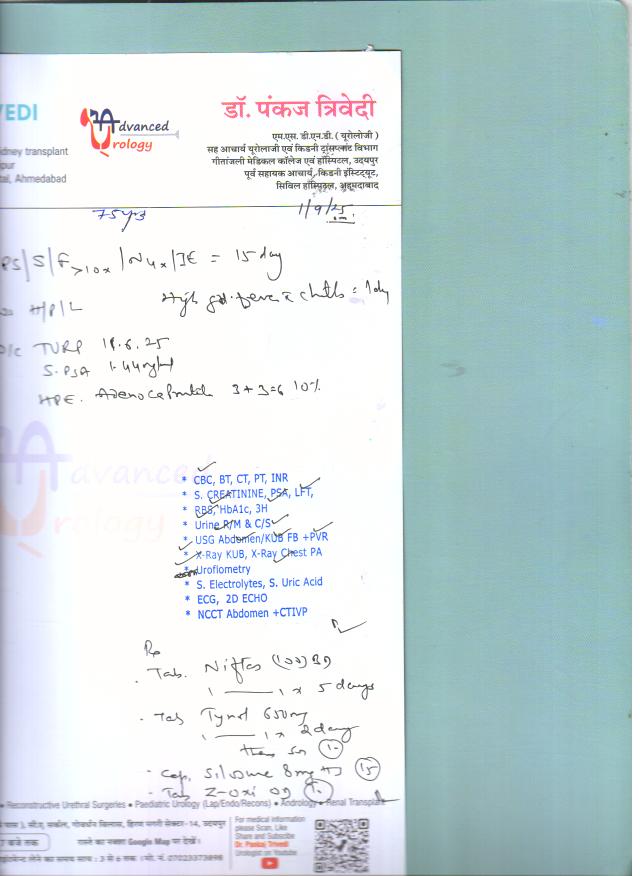 VEDI
idney transplant
pur
tal, Ahmedabad
Advanced
Urology
डॉ. पंकज त्रिवेदी
एम.एस. डी.एन.बी. ( यूरोलोजी )
सह आचार्य यूरोलाजी एवं किडनी ट्रांसप्लांट विभाग
गीतांजली मेडिकल कॉलेज एवं हॉस्पिटल, उदयपुर
पूर्व सहायक आचार्य, किडनी इंस्टिट्यूट,
सिविल हॉस्पिटल, अहमदाबाद
75 yrs
1/9/25
PS/S/F >10x /N 4x /IE = 15 day
High gd. fever c chills = 1 day
H/P/L
TURP 18.6.25
S. PSA 1.44 ng/ml
HPE. 3+3=6 10%
Advanced
Urology
* CBC, BT, CT, PT, INR
* S. CREATININE, PSA, LFT,
* RBS, HbA1c, 3H
* Urine R/M & C/S
* USG Abdomen/KUB FB +PVR
* X-Ray KUB, X-Ray Chest PA
* Uroflometry
* S. Electrolytes, S. Uric Acid
* ECG, 2D ECHO
* NCCT Abdomen +CTIVP
Rx
Tab. Niftas (100) BD
1 — 1 x 5 days
Tab 650mg
1 — 1 x 2 day
then
Cap. 8mg HS (15)
Tab Z-oxi OD
• Reconstructive Urethral Surgeries • Paediatric Urology (Lap/Endo/Recons) • Andrology • Renal Transplant
सेक्टर-14, उदयपुर
7 बजे तक
रास्ते का नक्शा Google Map पर देखें।
लेने का समय सायं : 3 से 6 तक (मो. नं. 07023373898
For medical information
please Scan, Like
Share and Subscribe
Dr. Pankaj Trivedi
Urologist on Youtube